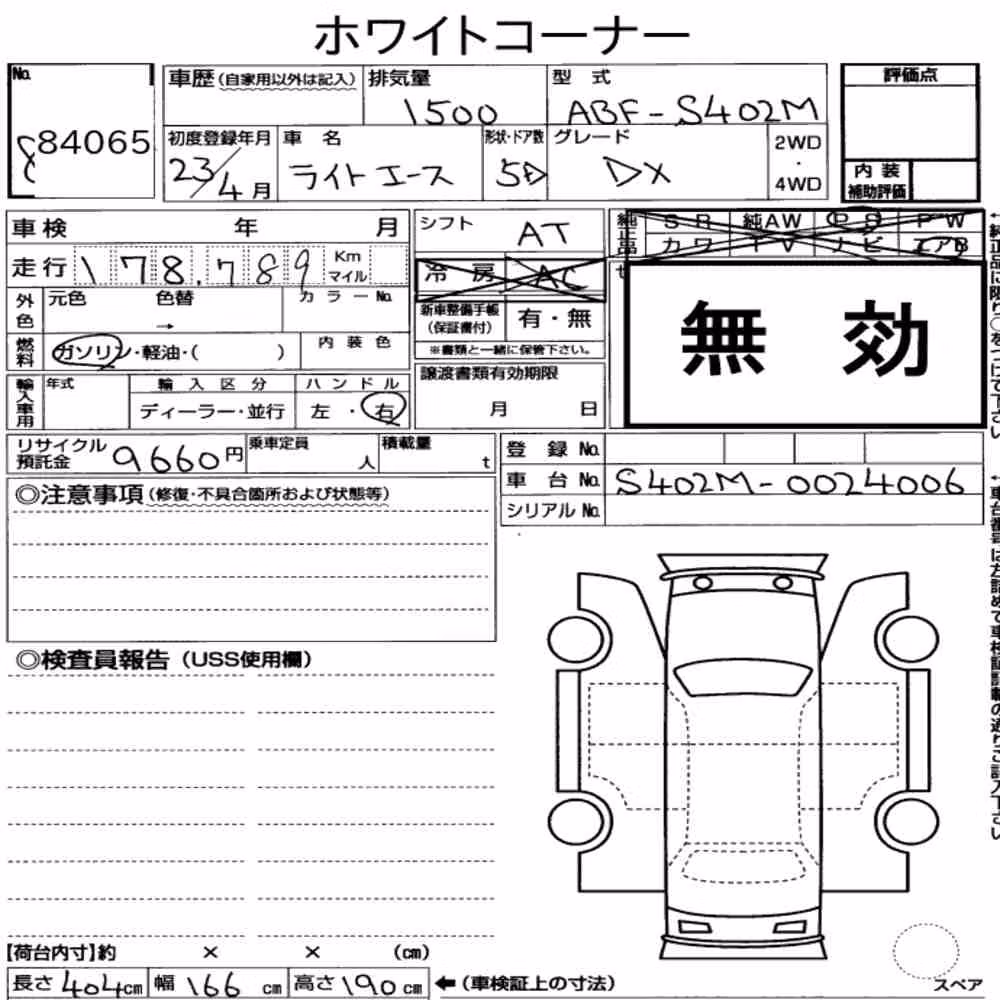 ホワイトコーナー
No. 84065
車歴(自家用以外は記入) 排気量 1500 型式 ABF-S402M
評価点
初度登録年月 23/4月 車名 ライトエース 形状・ドア数 5D グレード DX 2WD・4WD
内装補助評価
車検 年 月
シフト AT
純正品 SR 純AW PS PW
カワ TV ナビ エアB
走行 178,789 Km マイル
冷房 AC
外色 元色 色替 → カラーNo.
新車整備手帳(保証書付) 有・無
※書類と一緒に保管下さい。
無効
燃料 ガソリン・軽油・( ) 内装色
輸入車用 年式 輸入区分 ディーラー・並行 ハンドル 左・右
譲渡書類有効期限 月 日
リサイクル預託金 9660円 乗車定員 人 積載量 t
登録No.
車台No. S402M-0024006
シリアルNo.
◎注意事項(修復・不具合箇所および状態等)
◎検査員報告(USS使用欄)
【荷台内寸】約 × × (cm)
長さ404cm 幅166cm 高さ190cm ←(車検証上の寸法)
スペア
←純正品に限り○をつけて下さい